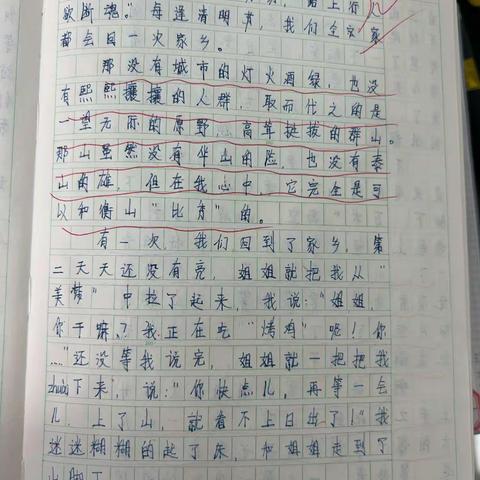 欲断魂。"每逢清明节，我们全家
都会回一次家乡。
那没有城市的灯火酒绿，也没
有熙熙攘攘的人群，取而代之的是
一望无际的原野，高耸挺拔的群山。
那山虽然没有华山的险，也没有泰
山的雄，但在我心中，它完全是可
以和衡山"比肩"的。
有一次，我们回到了家乡，第
二天天还没有亮，姐姐就把我从"
美梦"中拉了起来，我说："姐姐，
你干嘛？我正在吃"烤鸡"呢！你
……"还没等我说完，姐姐就一把把我
zhuài下来，说："你快点儿，再等一会
儿，上了山，就看不上日出了！"我
迷迷糊糊的起了床，和姐姐走到了
山脚下